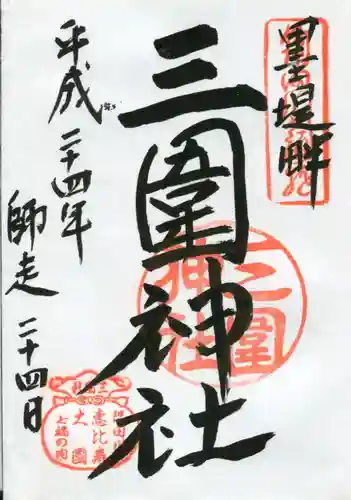 墨堤畔
三圍神社
平成二十四年
師走二十四日
三圍
神社
恵比寿
大國
七福の内